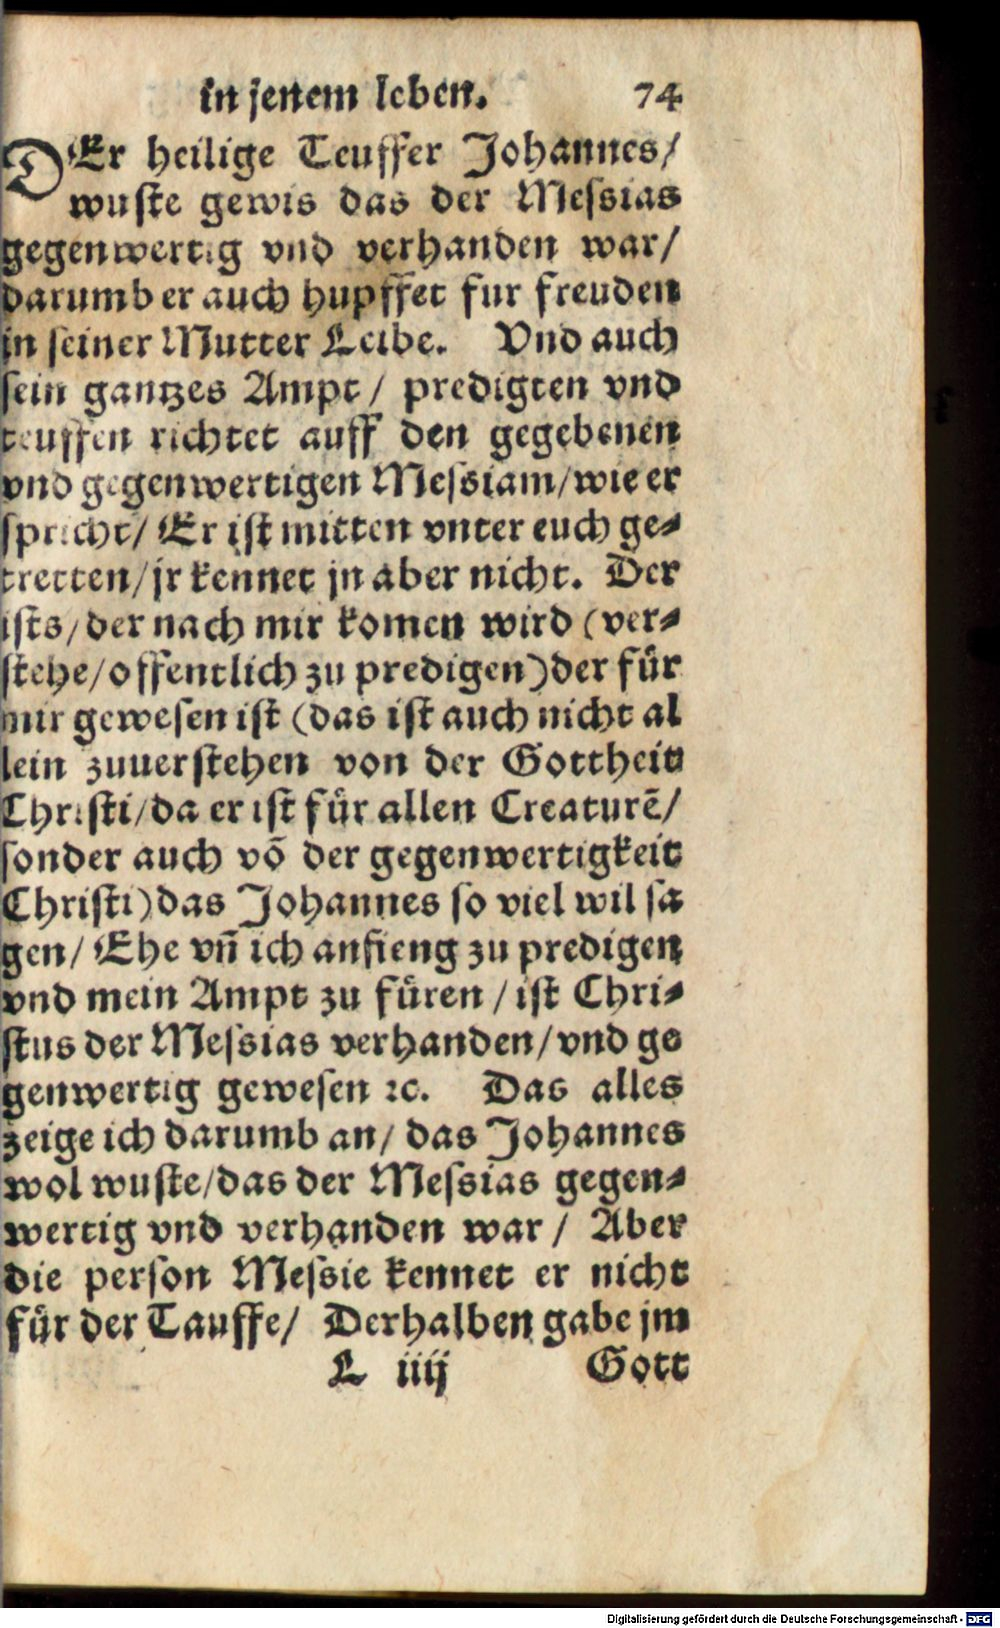 in jenem leben. 74
DEr heilige Teuffer Johannes/
wuste gewis das der Messias
gegenwertig vnd verhanden war/
darumb er auch hupffet fur freuden
in seiner Mutter Leibe. Vnd auch
sein gantzes Ampt/ predigten vnd
teuffen richtet auff den gegebenen
vnd gegenwertigen Messiam/wie er
spricht/ Er ist mitten vnter euch ge-
tretten/jr kennet jn aber nicht. Der
ists/der nach mir komen wird (ver-
stehe/offentlich zu predigen) der für
mir gewesen ist (das ist auch nicht al
lein zuuerstehen von der Gottheit
Christi/da er ist für allen Creaturē/
sonder auch vō der gegenwertigkeit
Christi) das Johannes so viel wil sa
gen/ Ehe vñ ich anfieng zu predigen
vnd mein Ampt zu füren/ist Chri-
stus der Messias verhanden/vnd ge
genwertig gewesen ꝛc. Das alles
zeige ich darumb an/ das Johannes
wol wuste/das der Messias gegen-
wertig vnd verhanden war/ Aber
die person Messie kennet er nicht
für der Tauffe/ Derhalben gabe jm
L iiij Gott
Digitalisierung gefördert durch die Deutsche Forschungsgemeinschaft - DFG